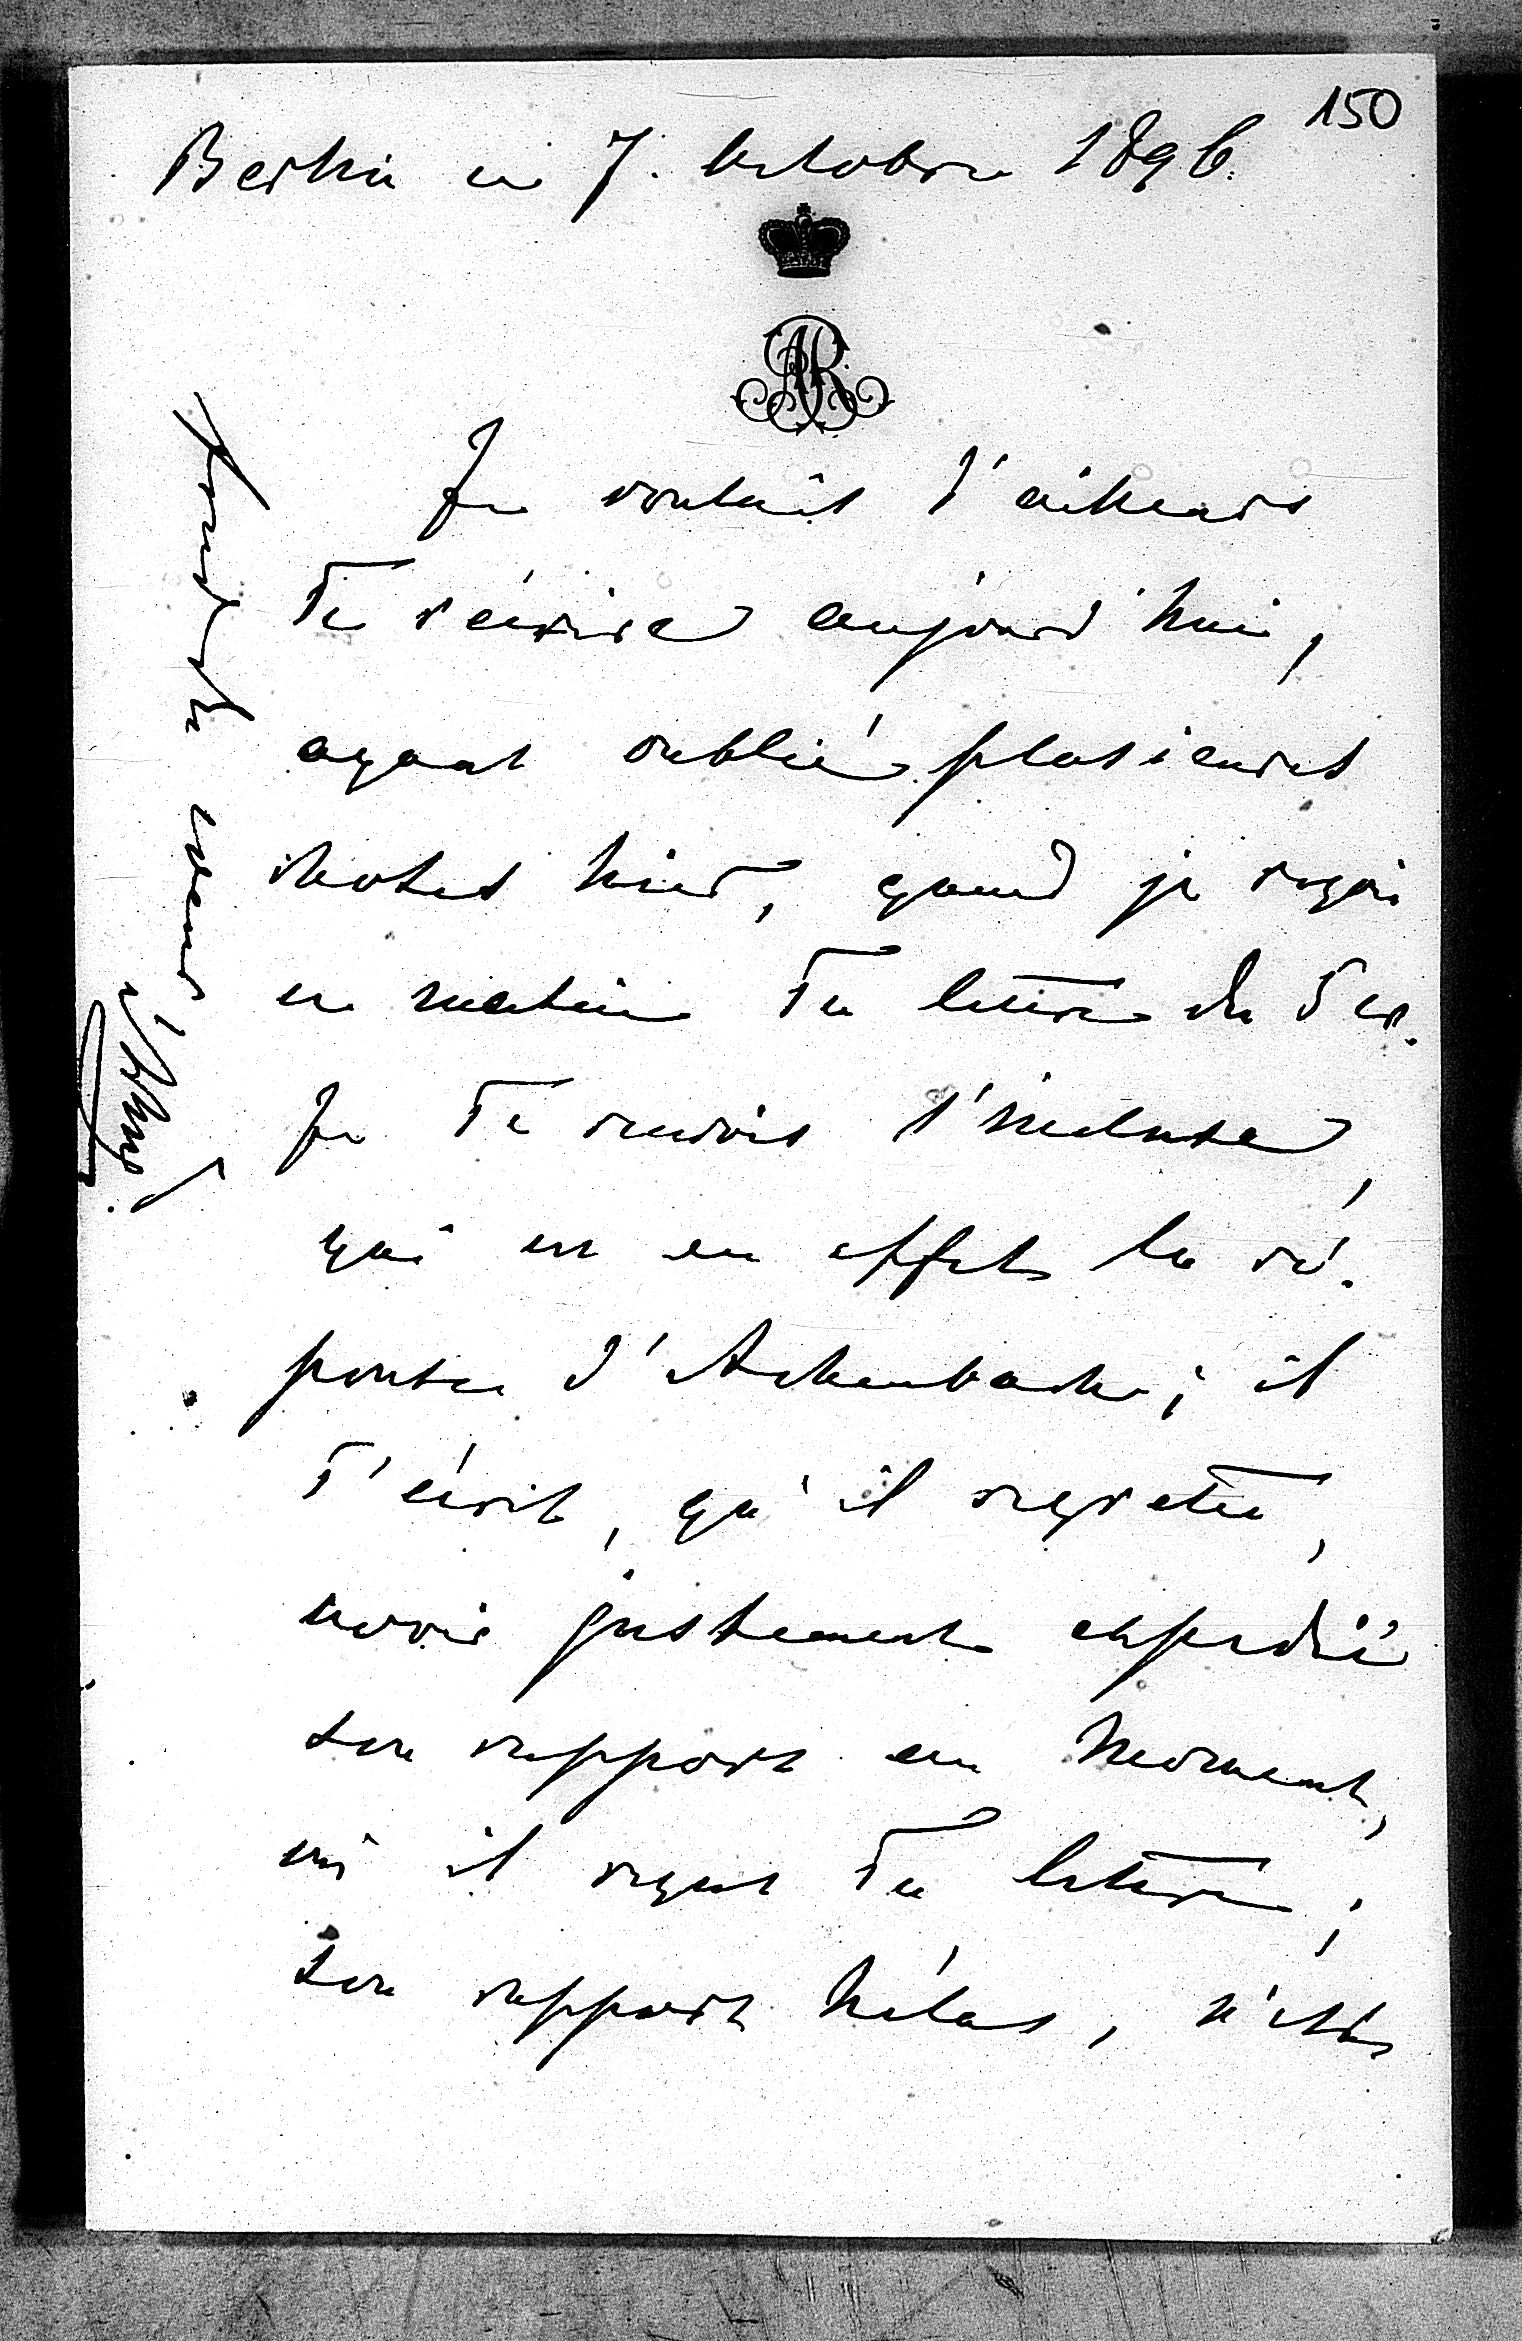 150
Berlin ce 7. Octobre 1896.
AR
Je voulais d'ailleurs
Te récrire aujourd'hui,
ayant oublié plusieurs
choses hier, quand je reçois
ce matin Ta lettre du 5 cr.
Je Te renvois l'incluse,
qui est en effet la ré-
ponse d'Achenbach; il
T'écrit, qu'il regrette,
avoir justement expedié
son rapport au moment,
où il reçut Ta lettre;
son rapport hélas, n'est